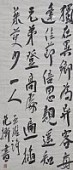 獨在異鄉為異客每
逢佳節倍思親遥知
兄弟登高處遍插
茱萸少一人